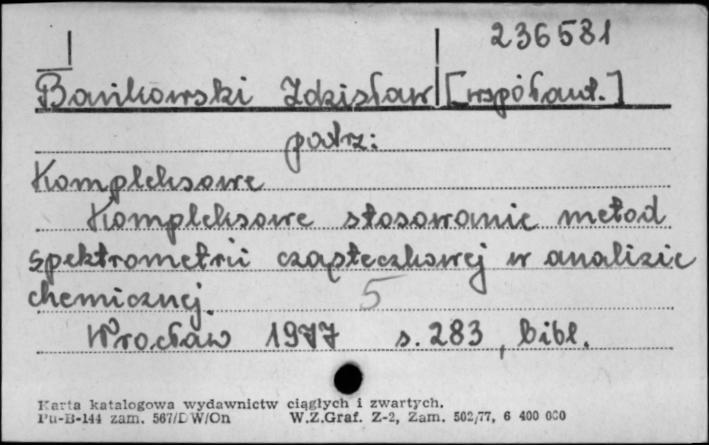 236581
Bańkowski Zdzisław [współaut.]
patrz:
Kompleksowe
Kompleksowe stosowanie metod
spektrometrii cząsteczkowej w analizie
chemicznej.
5
Wrocław 1977 s. 283, bibl.
Karta katalogowa wydawnictw ciągłych i zwartych.
Pu-B-144 zam. 567/DW/On W.Z.Graf. Z-2, Zam. 502/77, 6 400 000